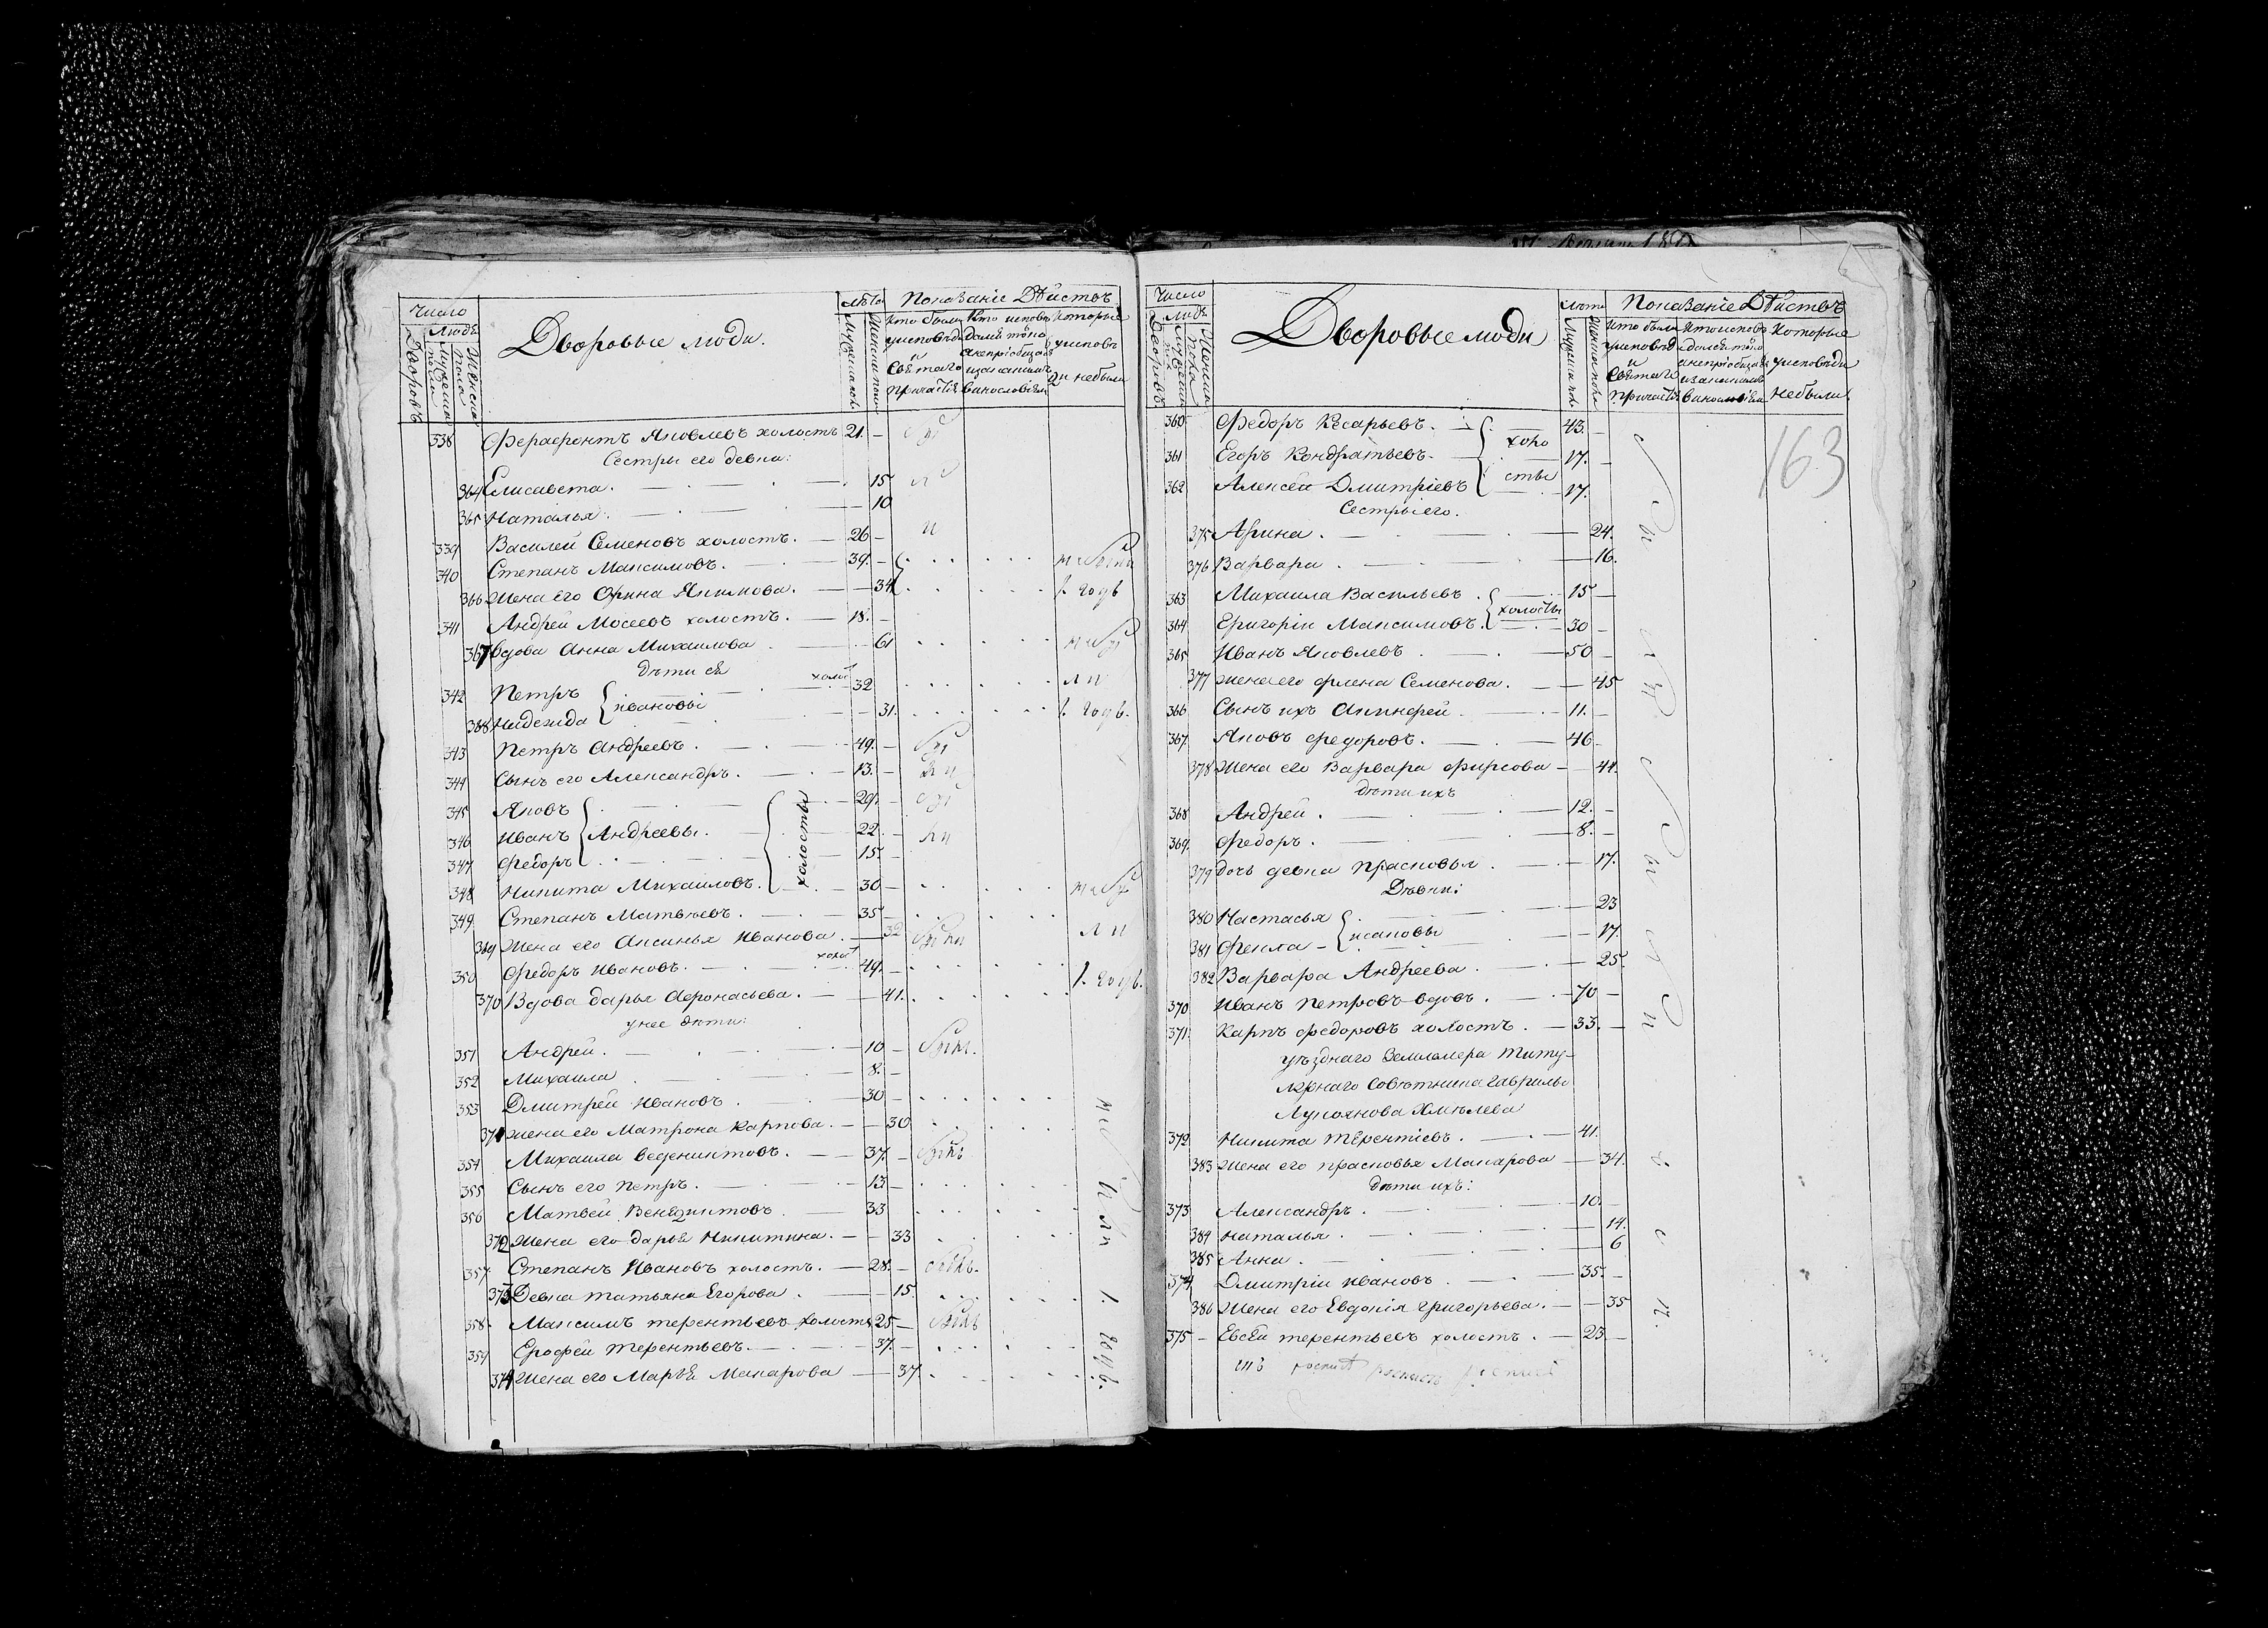 Число
Людѣ
Дворовъ
Мужеска пола
Женска пола
Дворовые люди.
Лѣта
Мужеска полъ
Женска полъ
Показанiе Дѣйствъ
Кто были у исповѣди и Святаго причастiя
Которые у исповѣди небыли
338 Ферафонтъ Яковлевъ холостъ 21. –
Сестры его девки:
364 Елисавета. 15
365 Наталья. 10
339 Василей Семеновъ холостъ. 26 –
340 Степанъ Максимовъ. 39. –
366 Жена его Орина Якимова. 34
341 Андрей Мосеевъ холостъ. 18. –
367 Вдова Анна Михаилова 61
дѣти ея
342 Петръ холос 32
Ивановы
368 Надежда 31.
343 Петръ Андреевъ. 49. –
344 Сынъ его Александръ. 13. –
345 Яковъ 29. –
346 Иванъ Андреевы. 22. –
347 Федоръ 15.
холосты
348 Никита Михаиловъ. 30 –
349 Степанъ Матвѣевъ. 35 –
369 Жена его Аксинья Иванова. 32
350 Федоръ Ивановъ. холос 49. –
370 Вдова дарья Афонасьева. 41.
у нее дѣти:
351 Андрей. 10 –
352 Михаила 8. –
353 Дмитрей Ивановъ. 30 –
371 жена его Матрона Карпова. 30
354 Михаила Веденихтовъ. 37. –
355 Сынъ его Петръ. 13
356 Матвей Венедихтовъ 33
372 Жена его дарья Никитина. 33
357 Степанъ Ивановъ холостъ. 28. –
373 Девка татьяна Егорова. 15.
358. Максимъ терентьевъ холостъ 25 –
359 Ерофей терентьевъ. 37. –
374 Жена его Марья Макарова 37
Число
Людѣ
Дворовъ
Мужеска
Женска
пола
Дворовые люди
Лѣта
Мужеска полъ
Женска полъ
Показанiе Дѣйствъ
Кто были у исповѣд и Святаго причастiя
Которые у исповѣди небыли
163
360 Федоръ Кесарьевъ. 43. –
холо
361 Егоръ Кондратьевъ. 17. –
сты
362 Алексей Дмитрiевъ 17.
Сестры его.
375 Арина. 24.
376 Варвара. 16.
363 Михаила Васильевъ. 15 –
холосты
364 Григорiи Максимовъ. 30 –
365 Иванъ Яковлевъ. 50 –
377 Жена его Флена Семенова. 45
366 Сынъ ихъ Акинфей. 11. –
367. Яковъ Федоровъ. 46 –
378 Жена его Варвара Фирсова 41.
дѣти ихъ
368 Андрей. 12. –
369. Федоръ. 8. –
379 дочь девка прасковья. 17.
Дѣвки:
380 Настасья 23
исаковы
381 Фекла – 17.
382 Варвара Андреева. 25.
370 Иванъ Петровъ вдовъ. 70 –
371. Карпъ Федоровъ холостъ. 33. –
уѣзднаго Землемера титу-
лярнаго Совѣтника Гаврилы
Лукоянова Хмѣлева
372 Никита терентiевъ. 41.
383 Жена его прасковья Макарова 34.
дѣти ихъ:
373 Александръ. 10. –
384 наталья. 14.
385 Анна. 6
374 Дмитрiи ивановъ. 35. –
386 Жена его Евдокiя григорьева. 35
375 – Евсѣй терентьевъ холостъ. 23 –